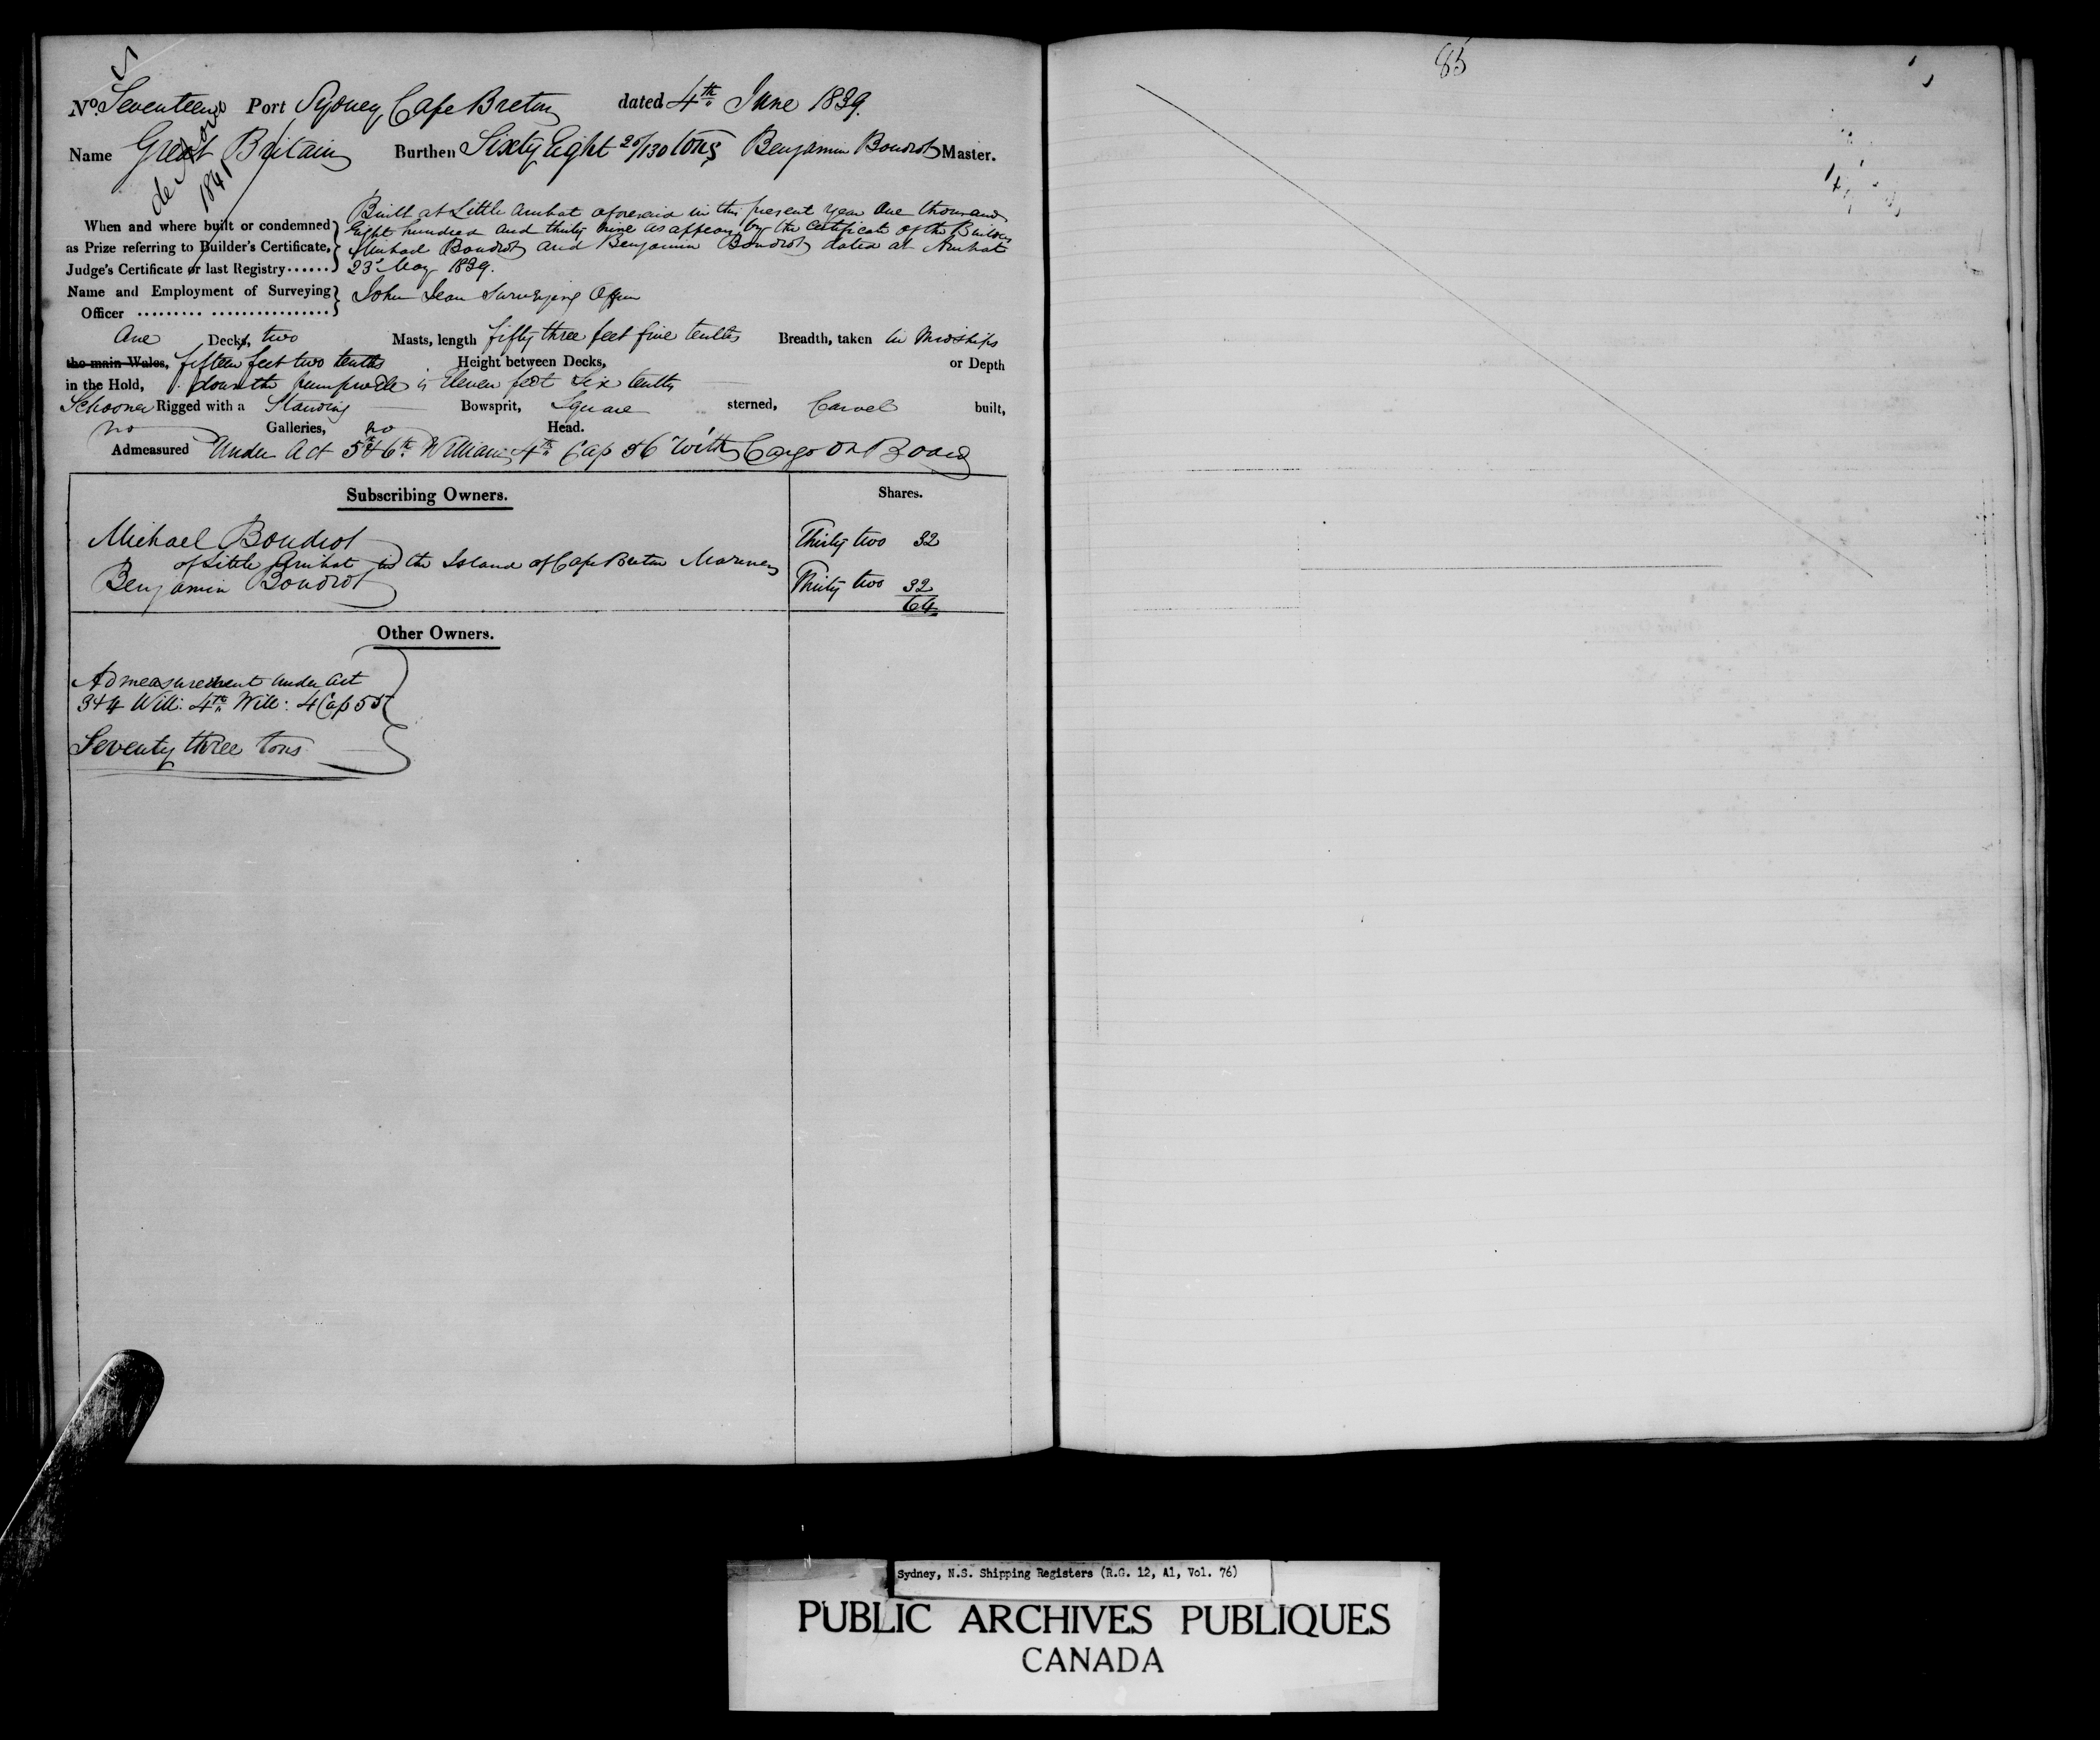 No. Seventeen Port Sydney Cape Breton dated 4th June 1839.
Name Great Britain Burthen Sixty Eight 20/130 tons Benjamin Boudrot Master.
de Novo
1841
Built at Little Arichat aforesaid in this present year One thousand
When and where built or condemned Eight hundred and thirty nine as appears by the Certificate of the Builders
as Prize referring to Builder's Certificate, Michael Boudrot and Benjamin Boudrot dated at Arichat
Judge's Certificate or last Registry...... 23d May 1839.
Name and Employment of Surveying John Jean Surveying Officer
Officer ......... .................
One Decks, two Masts, length fifty three feet five tenths Breadth, taken in Midships
the main Wales, fifteen feet two tenths Height between Decks, or Depth
in the Hold, down the pumpwell is Eleven feet Six tenths
Schooner Rigged with a Standing Bowsprit, Square sterned, Carvel built,
no Galleries, no Head.
Admeasured Under Act 5th & 6th William 4th Cap 56 With Cargo on Board
Subscribing Owners. Shares.
Michael Boudrot Thirty two 32
of Little Arichat in the Island of Cape Breton Mariners
Benjamin Boudrot Thirty two 32
64
Other Owners.
Admeasurement under Act
3 & 4 Will: 4th Will: 4 Cap 55
Seventy three tons
85
Sydney, N.S. Shipping Registers (R.G. 12, A1, Vol. 76)
PUBLIC ARCHIVES PUBLIQUES
CANADA